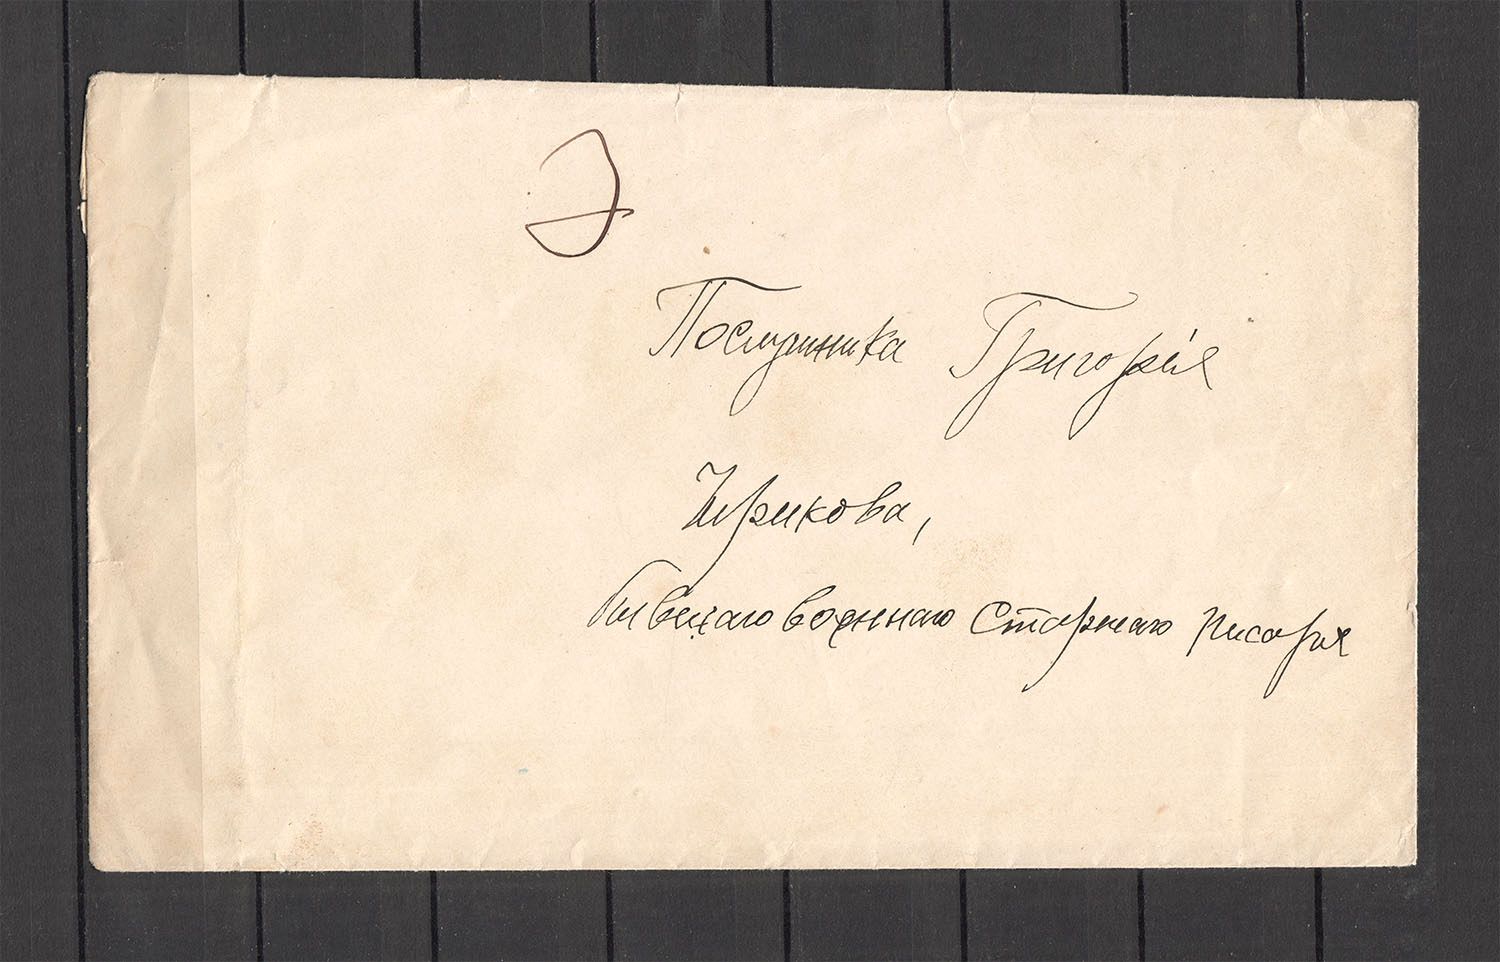 Э
Послушника Григорія
Цурикова,
бывшаго военнаго Старшаго писаря